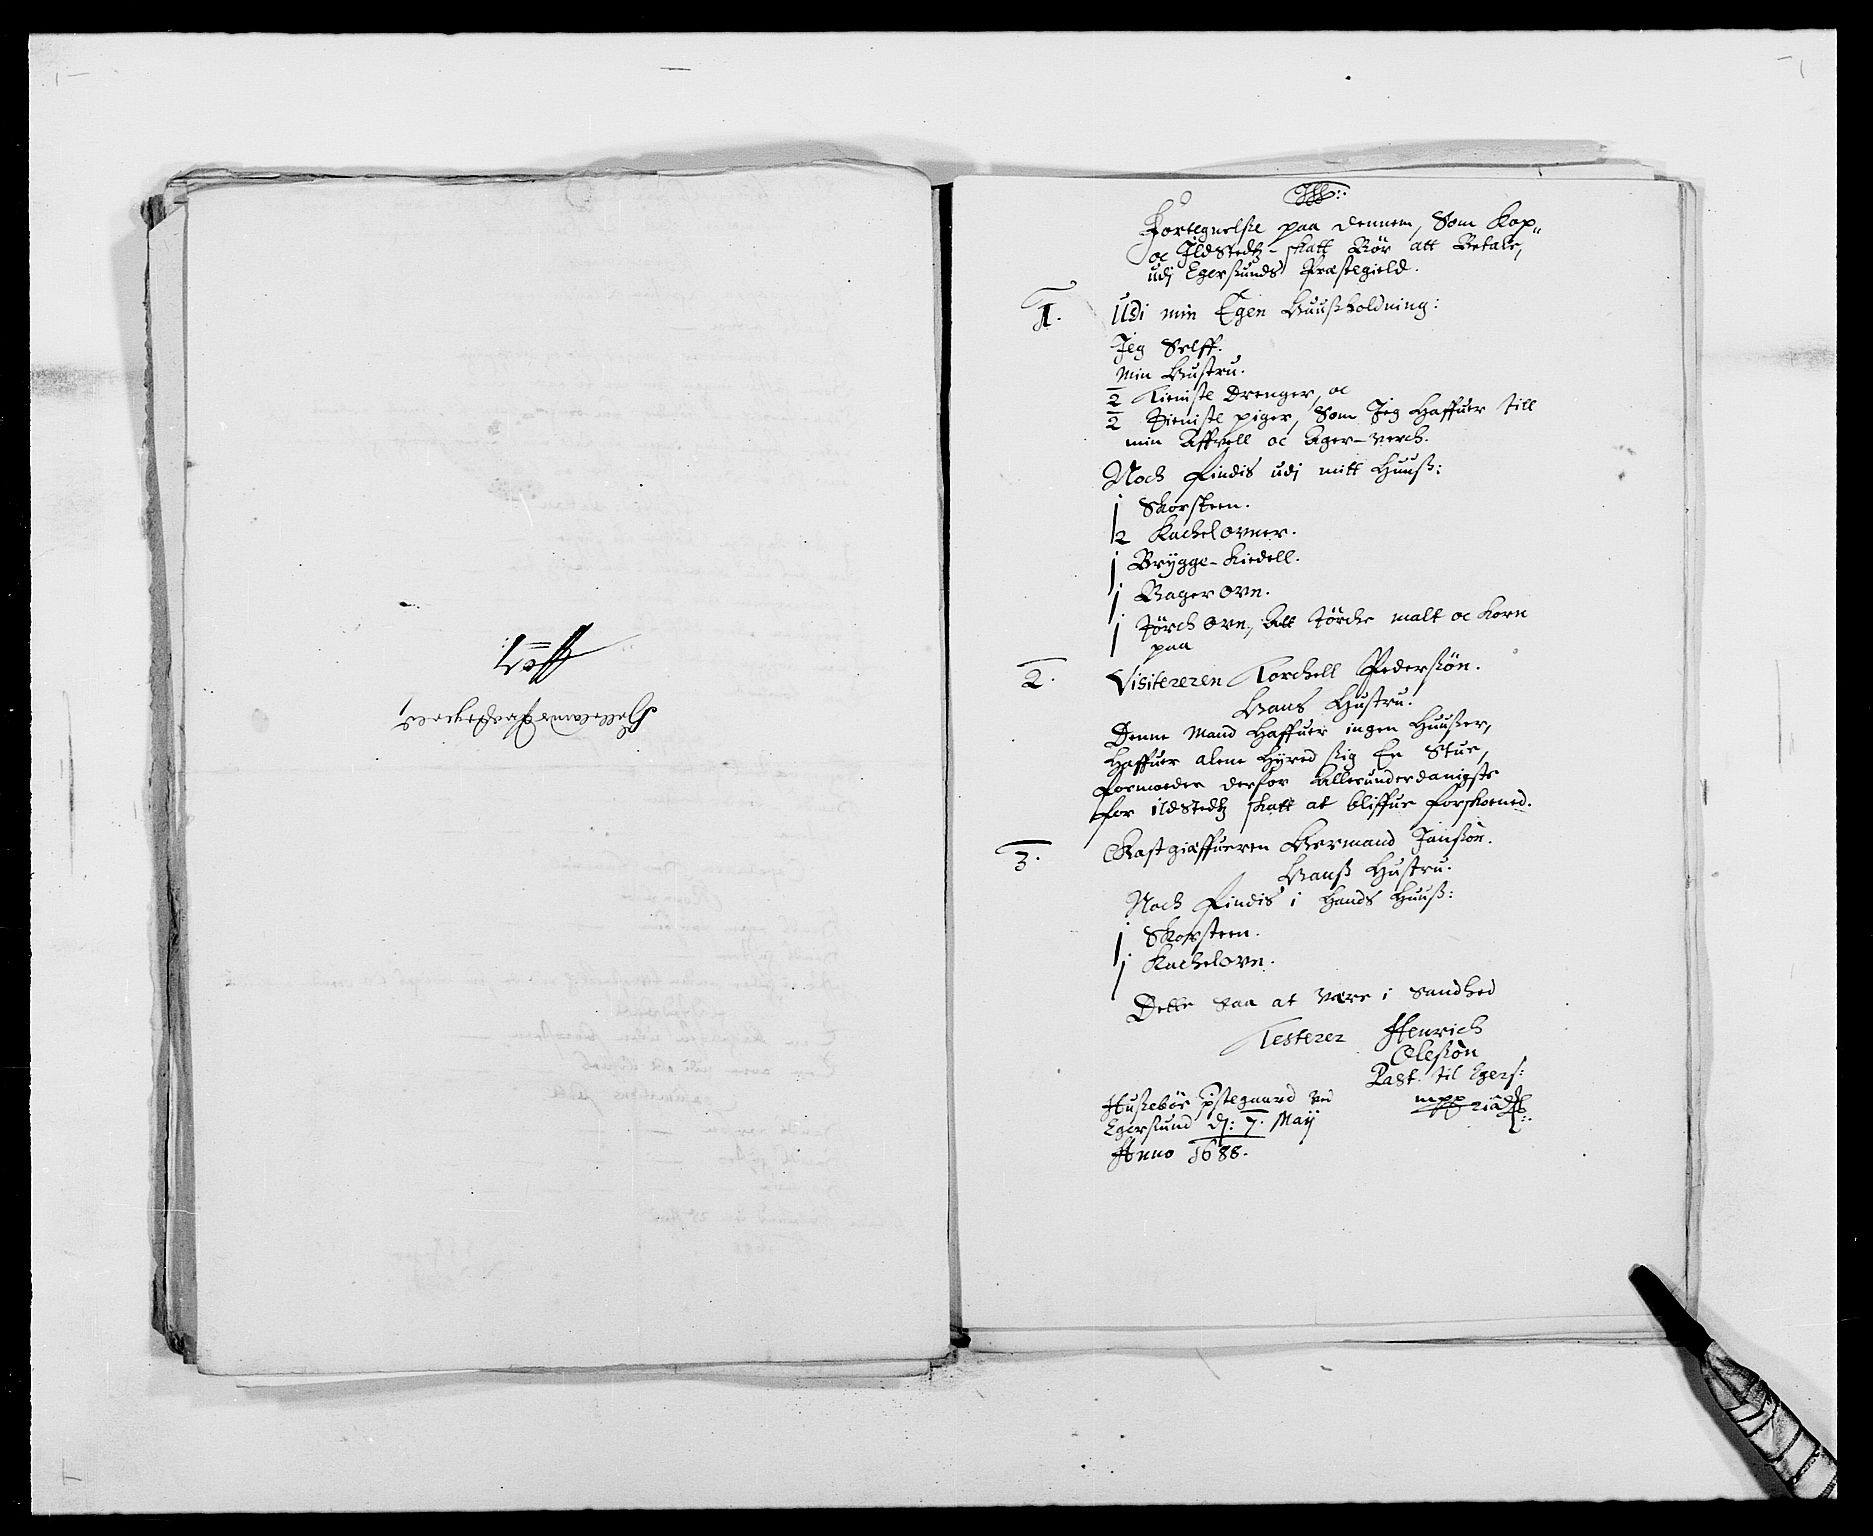 Fortegnelse paa dennem, Som Kop„
oc Ildstedtz-skatt Bör att Betale,
udj Egersunds Præstegield.
1. Udi min Egen Huuszholdning:
Jeg Selff.
min Hustru.
2 Tieniste Drenger, oc
2 Tieniste piger, Som Jeg Haffuer till
min Affvell oc Ager-verch.
Noch Findis udj mitt Huusz:
1 Skorsteen.
2 Kachelovner.
1 Brygge-Kiedell.
1 Bagerovn.
1 Törch ovn, att törcke malt oc Korn
paa
2. Visitereren Torchell Pederszön.
Hans Hustru.
Denne Mand Haffuer ingen Huuszer,
Haffuer alene Hyred szig En Stue,
formoeder derfor allerunderdanigste
for ildstedtz skatt at bliffue forskoened.
3. Gastgiæffueren Hermand Janszön.
Hansz Hustru.
Noch Findis i Hands Huusz:
1 Skorsteen.
1 Kachelovn.
Dette saa at være i Sandhed
Testerer Henrich
Oleszön
Past. til Egers:
mpp riâ
Huszeböe pstegaard ved
Egersund dj: 7. Maij
Anno 1688.